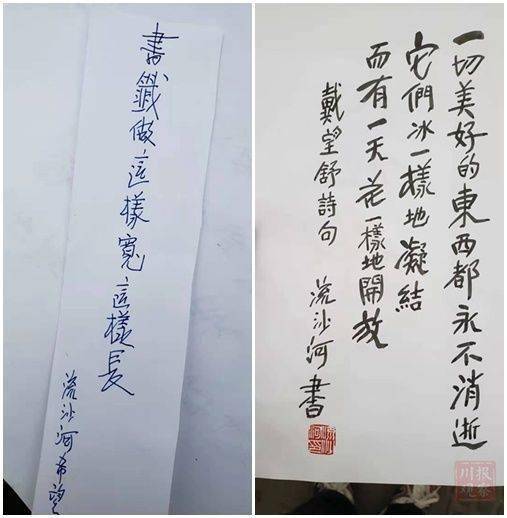 書籤做這樣寬這樣長
流沙河希望
一切美好的東西都永不消逝
它們冰一樣地凝結
而有一天花一樣地開放
戴望舒詩句
流沙河書
川报观察